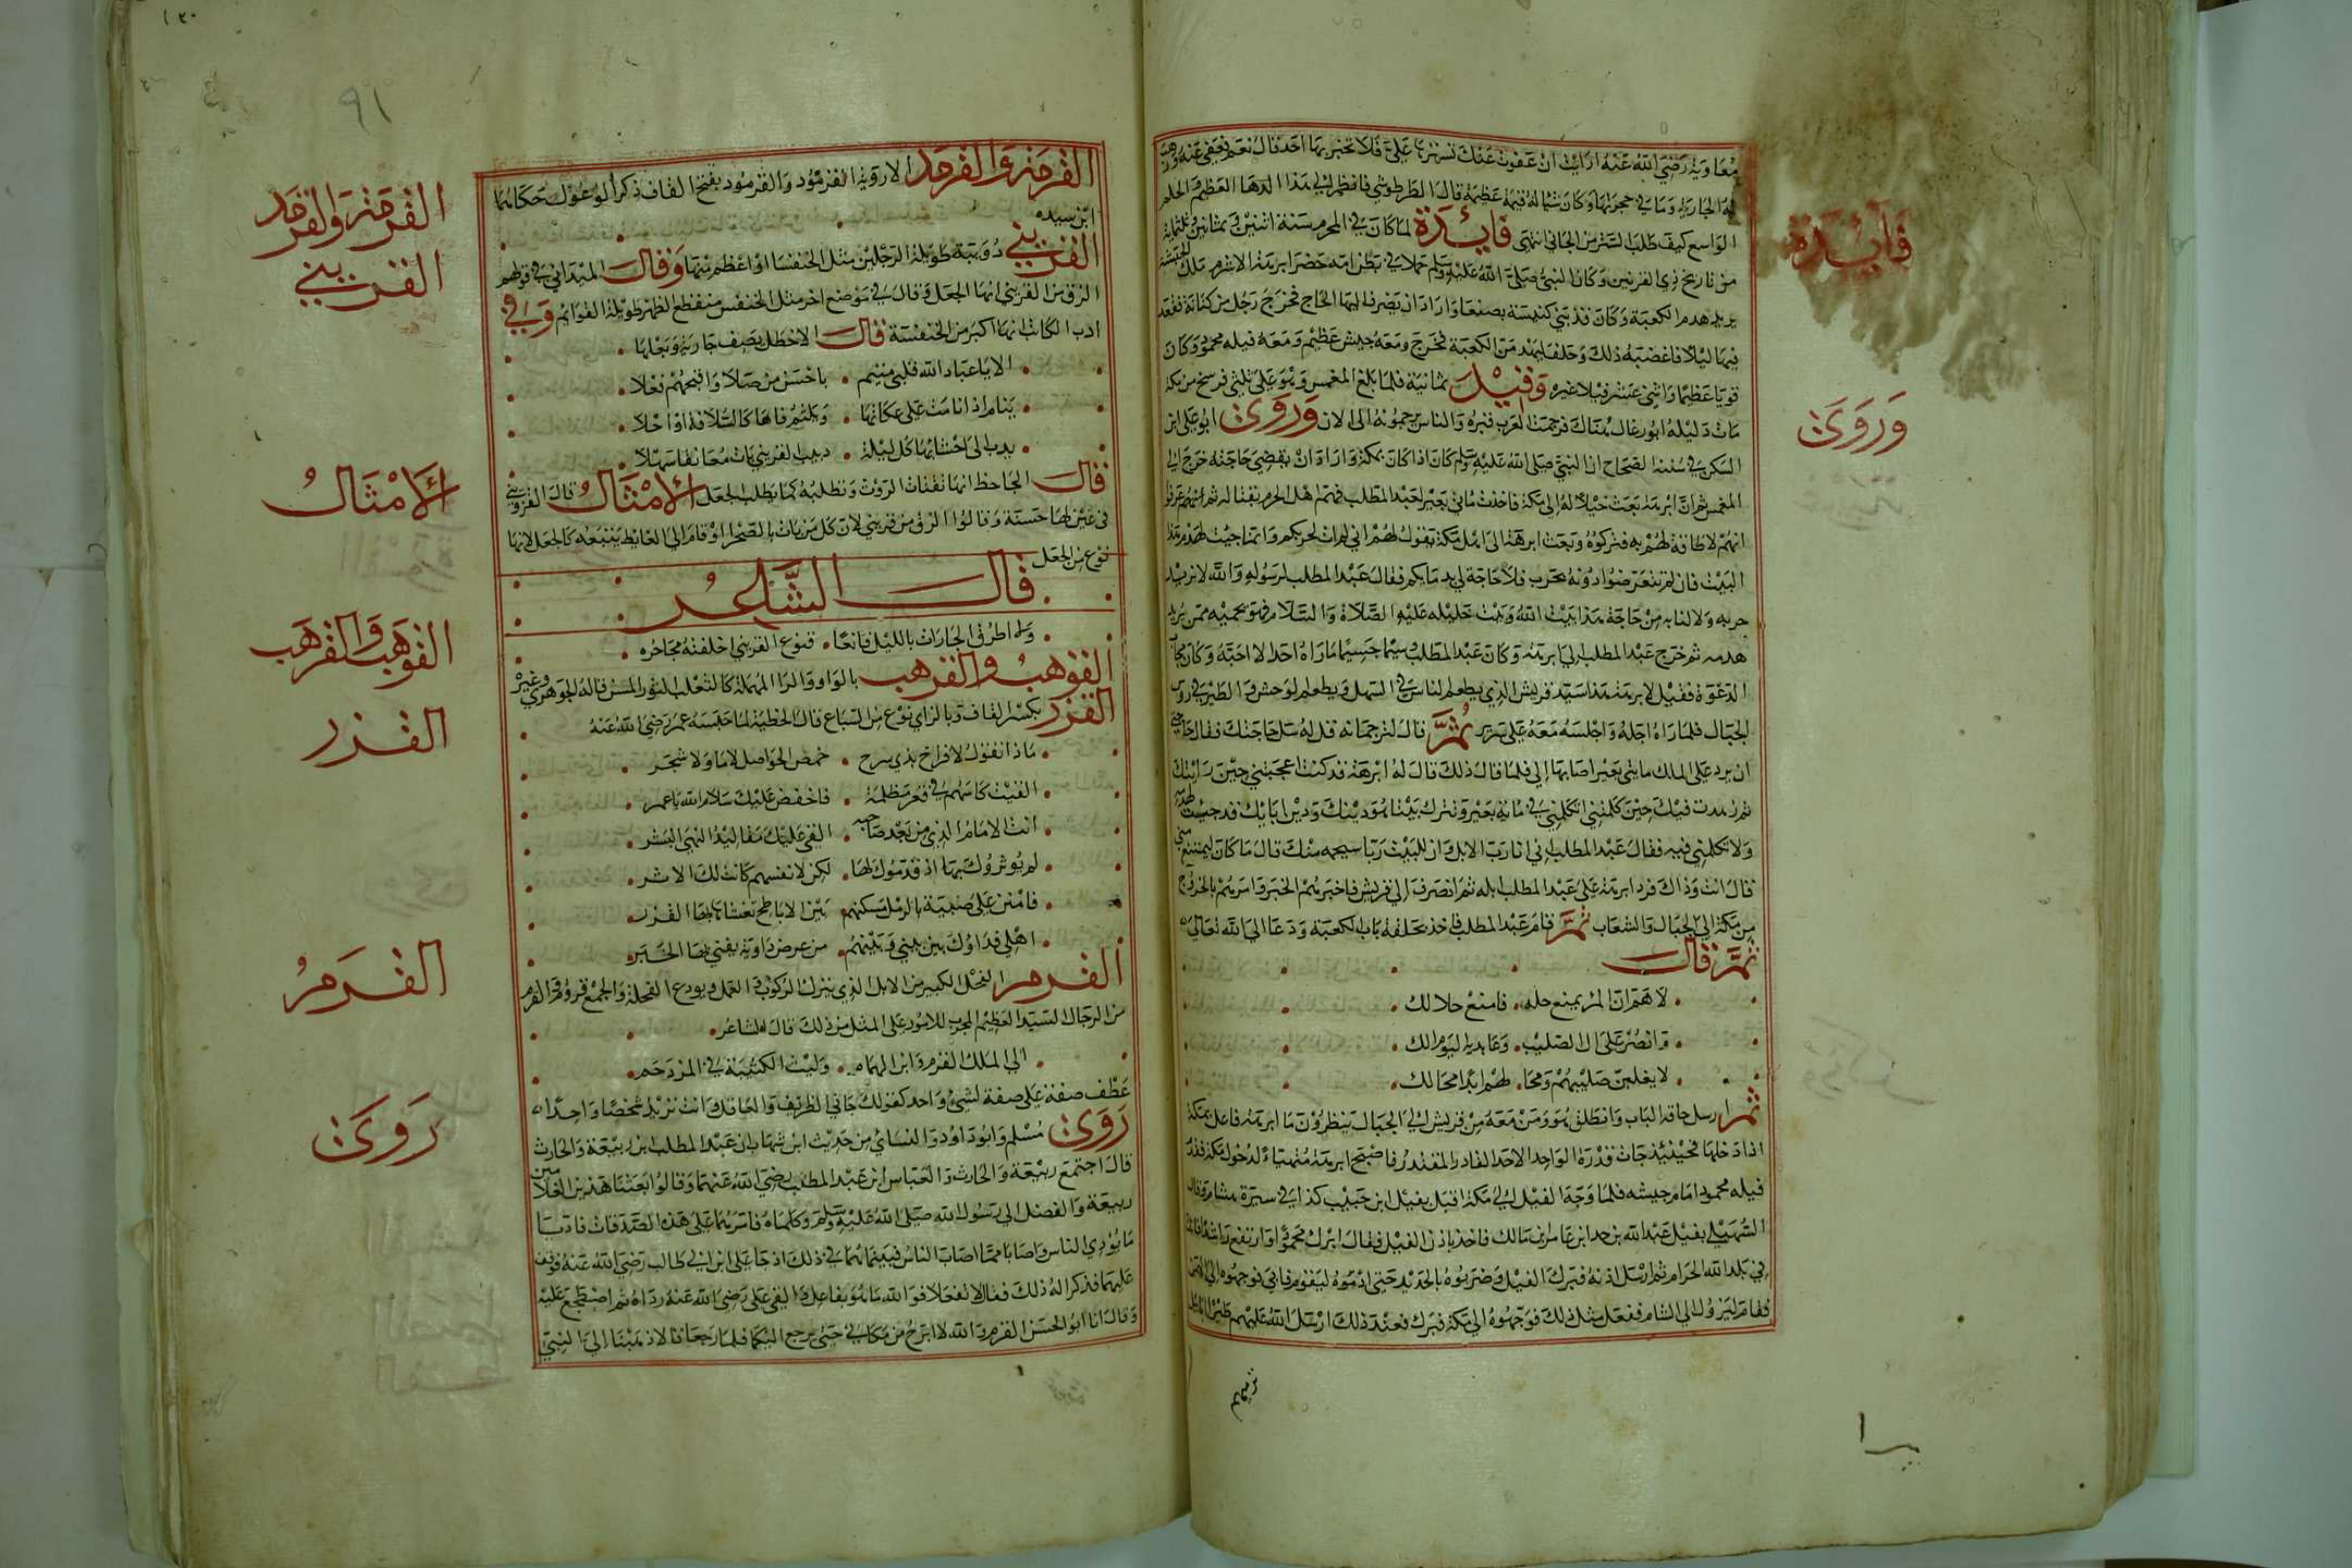 فايدة
وروى
معاوية رضي الله عنه ارايت ان عفوت عنك تسترها علي فلا تخبر بها احد قال نعم فعفى عنه ووهب
له الجارية وما في حجرتها وكان شيا له قيمة عظيمة قال الطرطوشي فانظر الي هذا الدها العظيم والحلم
الواسع كيف طلب الستر من الجاني انتهى فايدة لما كان في المحرم سنة اثنين وثمانين وثلثماية
من تاريخ ذي القرنين وكان النبي صلى الله عليه وسلم حملا في بطن امه حضر ابرهة الاشرم ملك الحبشة
يريد هدم الكعبة وكان قد بنى كنيسة بصنعا واراد ان يصرف اليها الحاج فخرج رجل من كنانة فقعد
فيها ليلا فاغضبه ذلك وحلف ليهدمن الكعبة فخرج ومعه جيش عظيم ومعه فيله محمود وكان
قويا عظيما واثني عشر فيلا غيره وقيل ثمانية فلما بلغ المغمس وهو على ثلثي فرسخ من مكة
مات دليله ابو رغال هناك فرجمت العرب قبره والناس يرجمونه الى الان وروى ابو علي ابن
السكن في سننه الصحاح ان النبي صلى الله عليه وسلم كان اذا كان بمكة واراد ان يقضي حاجته خرج الي
المغمس ثم ان ابرهة بعث خيلا له الى مكة فاخذت مايتي بعير لعبد المطلب فهم اهل الحرم بقتاله ثم انهم عرفوا
انهم لا طاقة لهم به فتركوه وبعث ابرهة الى اهل مكة يقول لهم اني لم ات لحربكم وانما جيت لهدم هذا
البيت فان لم تتعرضوا دونه بحرب فلا حاجة لي بدمايكم فقال عبد المطلب لرسوله والله لا نريد
حربه ولا لنا به من حاجة هذا بيت الله وبيت خليله عليه الصلاة والسلام فهو يحميه ممن يريد
هدمه ثم خرج عبد المطلب الي ابرهة وكان عبد المطلب وسيما جسيما ما راه احد الا احبه وكان مجاب
الدعوة فقيل لابرهة هذا سيد قريش الذي يطعم الناس في السهل ويطعم الوحش والطير في روس
الجبال فلما راه اجله واجلسه معه على سريره ثم قال لترجمانه قل له سل حاجتك فقال حاجتي
ان يرد على الملك مايتي بعير اصابها الي فلما قال ذلك قال له ابرهة قد كنت اعجبتني حين رايتك
ثم زهدت فيك حين كلمتني اتكلمني في ماية بعير وتترك بيتا هو دينك ودين ابايك قد جيت لهدمه
ولا تكلمني فيه فقال عبد المطلب اني انا رب الابل وان للبيت ربا سيحميه منك قال ما كان ليمتنع مني
قال انت وذاك فرد ابرهة على عبد المطلب ابله ثم انصرف الى قريش فاخبرهم الخبر وامرهم بالخروج
من مكة الي الجبال والشعاب ثم قام عبد المطلب فاخذ بحلقة باب الكعبة ودعا الي الله تعالى
ثم قال
لاهم ان المرء يمنع حله. فامنع حلالك
وانصر على ال الصليب. وعابديه اليوم الك
لا يغلبن صليبهم ومحا. لهم ابدا محالك
ثم ارسل حلقة الباب وانطلق هو ومن معه من قريش الي الجبال ينظرون ما ابرهة فاعل بمكة
اذا دخلها فحينئذ جات قدرة الواحد الاحد القادر المقتدر فاصبح ابرهة متهيئا لدخول مكة وقدم
فيله محمود امام جيشه فلما وجه الفيل الي مكة اقبل نفيل ابن حبيب كذا في سيرة هشام وقال
السهيلي نفيل عبد الله بن جزا ابن عامر بن مالك فاخذ باذن الفيل فقال ابرك محمود او ارتفع راشدا فانك
في بلد الله الحرام ثم ارسل اذنه فبرك الفيل وضربوه بالحديد حتى ادموه ليقوم فابى فوجهوه الى اليمن
فقام يهرول الي الشام ففعل مثل ذلك فوجهوه الى مكة فبرك فعند ذلك ارسل الله عليهم طيرا ابابيل
ترميهم
٩١
القرمة والقرمد
القرنبي
الامثال
القوهب والقرهب
القزر
القرم
روى
القرمة والقرمد الاروية القرمود والقرمود بفتح القاف ذكر الوعول حكاهما
ابن سيده
القرنبي دويبة طويلة الرجلين مثل الخنفسا او اعظم منها وقال الميداني في قولهم
الزق من القرنبي انها الجعل وقال في موضع اخر مثل الخنفس منقطع الظهر طويلة القوائم وفي
ادب الكاتب انها اكبر من الخنفسة قال الاخطل يصف جارية وبعلها
الا يا عباد الله قلبي متيم. باحسن من صلا واقبحهم فعلا
ينام اذا نامت على عكاتها. ويلثم فاها كالسلافة او احلا
يدب الى احشائها كل ليلة. دبيب القرنبي بات معانقا سهلا
قال الجاحظ انها تقتات الروث وتطلبه كما يطلب الجعل الامثال قال القرنبي
في عين امها حسنة وقالوا الزق من قرنبي لان كل من بات بالصحرا او قام الي الغايط يتبعه كالجعل لانها
نوع من الجعل
قال الشاعر
ولا اطرق الجارات بالليل قابعا. قبوع القرنبي اخلفته مجاحره
القوهب والقرهب بالواو والرا المهملة كالثعلب الثور المسن قاله الجوهري وغيره
القزر بكسر القاف وبالزاي نوع من السباع قال الحطيئة لما حبسه عمر رضي الله عنه
ماذا تقول لافراخ بذي مرخ. خمص الحواصل لا ما ولا شجر
القيت كاسهم في قعر مظلمة. فاخفض عليك سلام الله يا عمر
انت الامام الذي من بعد صاحبه. القى عليك مقاليد النهى البشر
لم يوثروك بها اذ قدموك لها. لكن لانفسهم كانت لك الاثر
فامنن على صبية بالرمل مسكنهم. بين الاباطح تغشاهم بها القزر
اهلي فداؤك بين بيني وبينهم. من عرض داوية يفنى بها الخبر
القرم الفحل الكبير من الابل الذي يترك الركوب والعمل ويودع الفحلة والجمع قروم والقرم
من الرجال السيد العظيم المجرب للامور على المثل من ذلك قال الشاعر
الي الملك القرم وابن الهمام. وليث الكتيبة في المزدحم
عطف صفة على صفة لشيء واحد كقولك جاني الظريف والعاقل وانت تريد شخصا واحدا
روى مسلم وابو داود والنسائي من حديث ابن شهاب ان عبد المطلب ابن ربيعة والحارث
قال اجتمع ربيعة والحارث والعباس ابن عبد المطلب رضي الله عنهما وقالوا ابعثنا هذين الغلامين
ربيعة والفضل الى رسول الله صلى الله عليه وسلم وكلماه فامرهما على هذه الصدقات فاديا
ما يؤدي الناس واصابا مما اصاب الناس فبينما هما في ذلك اذ جا علي ابن ابي طالب رضي الله عنه فوقف
عليهما فذكرا له ذلك فقال لا تفعلا فوالله ما هو بفاعل والقى علي رضي الله عنه رداه ثم اضطجع عليه
وقال انا ابو الحسن القرم والله لا ابرح من مكاني حتى يرجع اليكما فلما رجعا قالا ذهبنا الي النبي